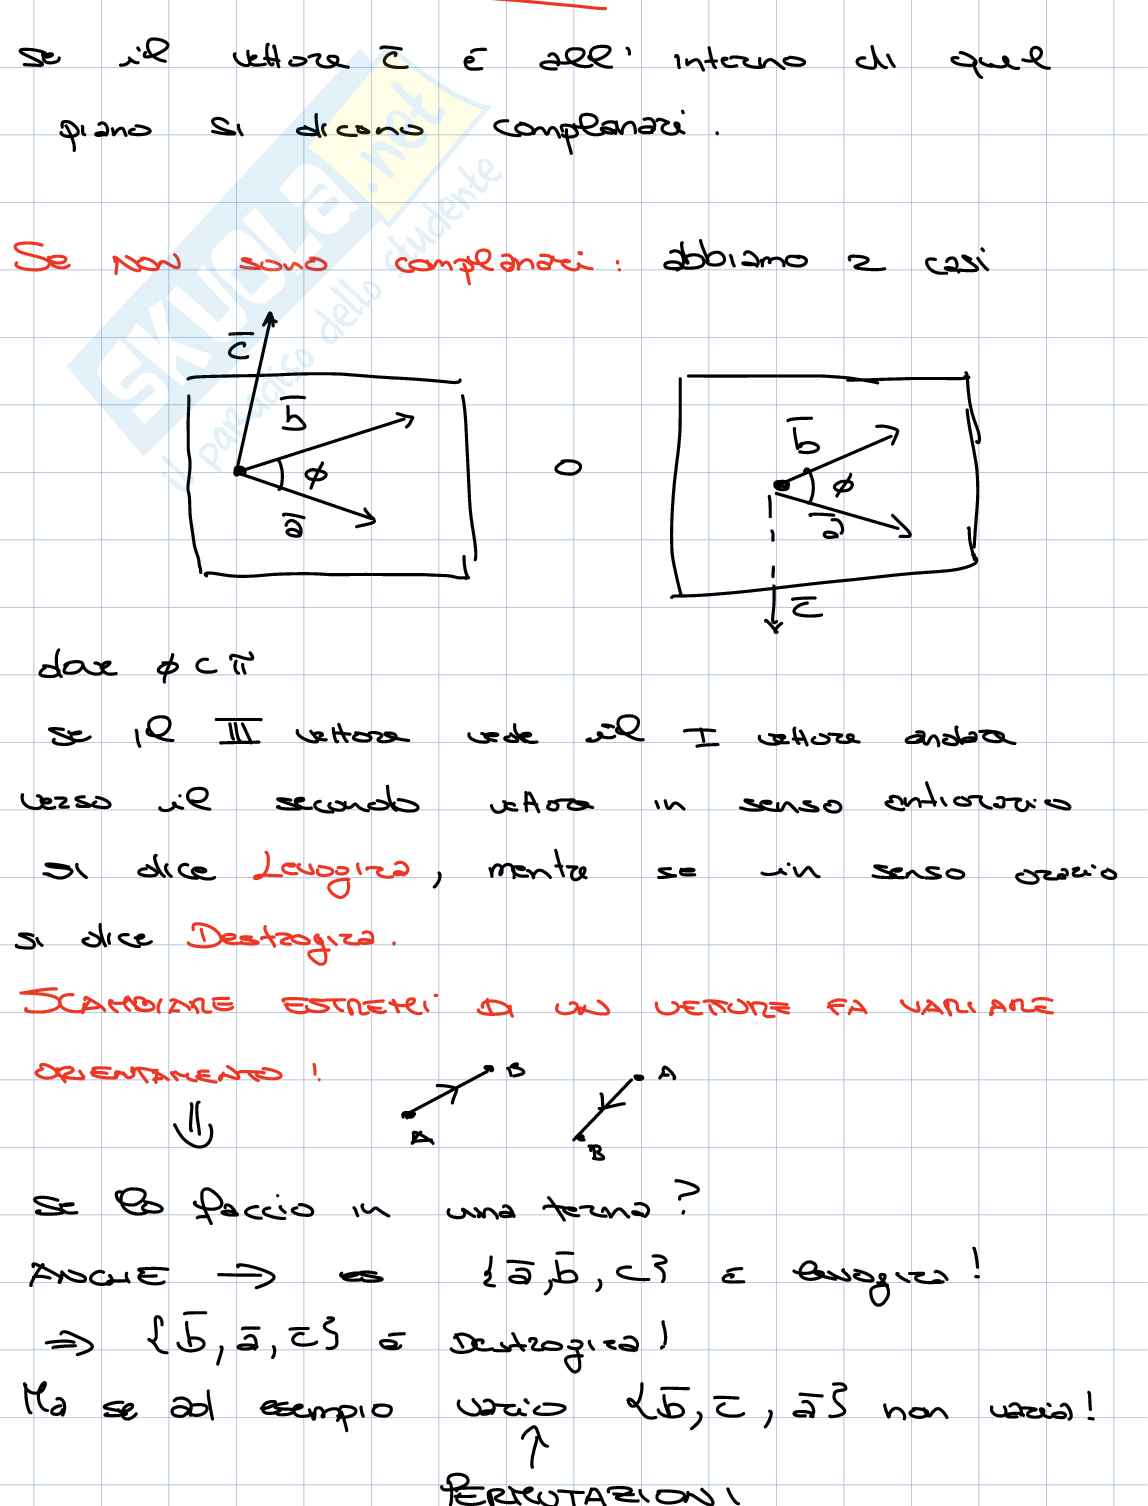 se il vettore c̅ è all' interno di quel
piano si dicono complanari.
Se non sono complanari: abbiamo 2 casi
c̅
b̅
φ
a̅
o
b̅
φ
a̅
c̅
dove φ < π
se il III vettore vede il I vettore andare
verso il secondo vettore in senso antiorario
si dice Levogira, mentre se in senso orario
si dice Destrogira.
SCAMBIARE ESTREMI DI UN VETTORE FA VARIARE
ORIENTAMENTO!
⇓
A B
A B
Se lo faccio in una terna?
ANCHE → {a̅, b̅, c} è levogira!
⇒ {b̅, a̅, c̅} è Destrogira!
Ma se ad esempio vario {b̅, c̅, a̅} non varia!
↑
PERMUTAZIONI
SKUOLA.net
il paradiso dello studente